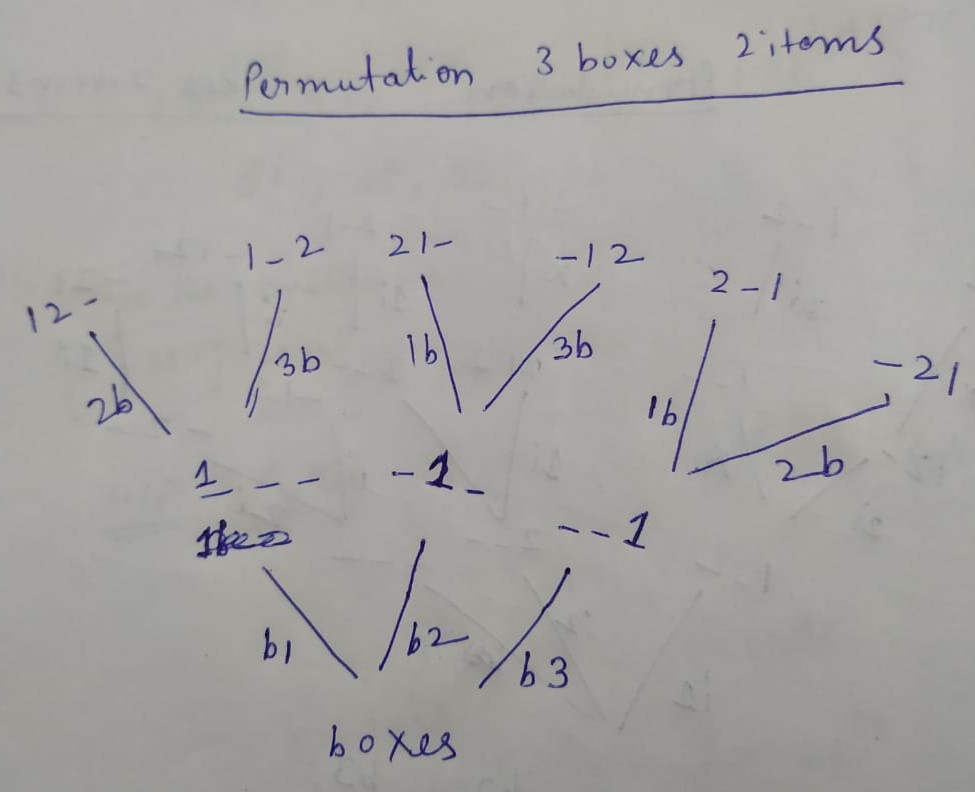 Permutation 3 boxes 2 items
12- 1-2 21- -12 2-1 -21
2b 3b 1b 3b 1b 2b
1 - - -1- --1
b1 b2 b3
boxes